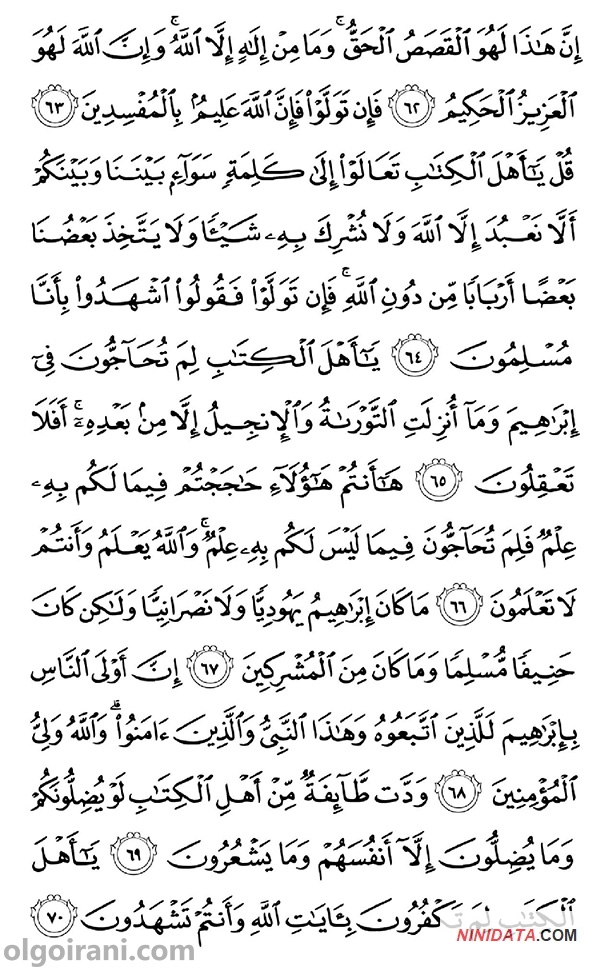 إِنَّ هَٰذَا لَهُوَ ٱلْقَصَصُ ٱلْحَقُّ ۚ وَمَا مِنْ إِلَٰهٍ إِلَّا ٱللَّهُ ۚ وَإِنَّ ٱللَّهَ لَهُوَ
ٱلْعَزِيزُ ٱلْحَكِيمُ ٦٢ فَإِن تَوَلَّوْا۟ فَإِنَّ ٱللَّهَ عَلِيمٌۢ بِٱلْمُفْسِدِينَ ٦٣
قُلْ يَٰٓأَهْلَ ٱلْكِتَٰبِ تَعَالَوْا۟ إِلَىٰ كَلِمَةٍ سَوَآءٍۭ بَيْنَنَا وَبَيْنَكُمْ
أَلَّا نَعْبُدَ إِلَّا ٱللَّهَ وَلَا نُشْرِكَ بِهِۦ شَيْـًٔا وَلَا يَتَّخِذَ بَعْضُنَا
بَعْضًا أَرْبَابًا مِّن دُونِ ٱللَّهِ ۚ فَإِن تَوَلَّوْا۟ فَقُولُوا۟ ٱشْهَدُوا۟ بِأَنَّا
مُسْلِمُونَ ٦٤ يَٰٓأَهْلَ ٱلْكِتَٰبِ لِمَ تُحَآجُّونَ فِىٓ
إِبْرَٰهِيمَ وَمَآ أُنزِلَتِ ٱلتَّوْرَىٰةُ وَٱلْإِنجِيلُ إِلَّا مِنۢ بَعْدِهِۦٓ ۚ أَفَلَا
تَعْقِلُونَ ٦٥ هَٰٓأَنتُمْ هَٰٓؤُلَآءِ حَٰجَجْتُمْ فِيمَا لَكُم بِهِۦ
عِلْمٌ فَلِمَ تُحَآجُّونَ فِيمَا لَيْسَ لَكُم بِهِۦ عِلْمٌ ۚ وَٱللَّهُ يَعْلَمُ وَأَنتُمْ
لَا تَعْلَمُونَ ٦٦ مَا كَانَ إِبْرَٰهِيمُ يَهُودِيًّا وَلَا نَصْرَانِيًّا وَلَٰكِن كَانَ
حَنِيفًا مُّسْلِمًا وَمَا كَانَ مِنَ ٱلْمُشْرِكِينَ ٦٧ إِنَّ أَوْلَى ٱلنَّاسِ
بِإِبْرَٰهِيمَ لَلَّذِينَ ٱتَّبَعُوهُ وَهَٰذَا ٱلنَّبِىُّ وَٱلَّذِينَ ءَامَنُوا۟ ۗ وَٱللَّهُ وَلِىُّ
ٱلْمُؤْمِنِينَ ٦٨ وَدَّت طَّآئِفَةٌ مِّنْ أَهْلِ ٱلْكِتَٰبِ لَوْ يُضِلُّونَكُمْ
وَمَا يُضِلُّونَ إِلَّآ أَنفُسَهُمْ وَمَا يَشْعُرُونَ ٦٩ يَٰٓأَهْلَ
ٱلْكِتَٰبِ لِمَ تَكْفُرُونَ بِـَٔايَٰتِ ٱللَّهِ وَأَنتُمْ تَشْهَدُونَ ٧٠
NINIDATA.COM
olgoirani.com